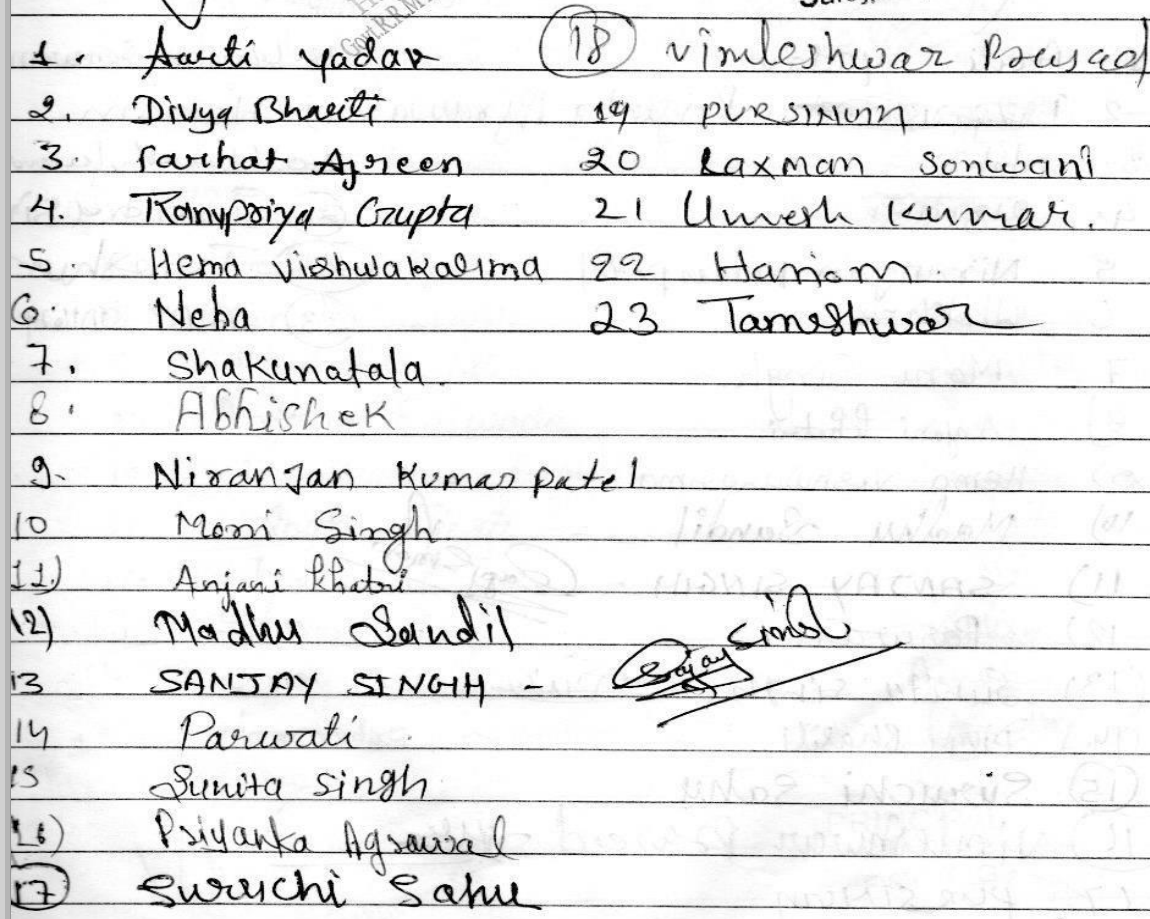 1. Aarti yadav
2. Divya Bharti
3. Farhat Afreen
4. Ranupriya Gupta
5. Hema vishwakarma
6. Neha
7. Shakunatala.
8. Abhishek
9. Niranjan Kumar patel
10 Moni Singh
11) Anjani Khatri
12) Madhu Sandil
13 SANJAY SINGH -
14 Parwati
15 Sunita singh
16) Priyanka Agrawal
17 Suruchi Sahu
18 vimleshwar Prasad
19 PURSINGH
20 Laxman Sonwani
21 Umesh Kumar.
22 Hariom.
23 Tameshwar